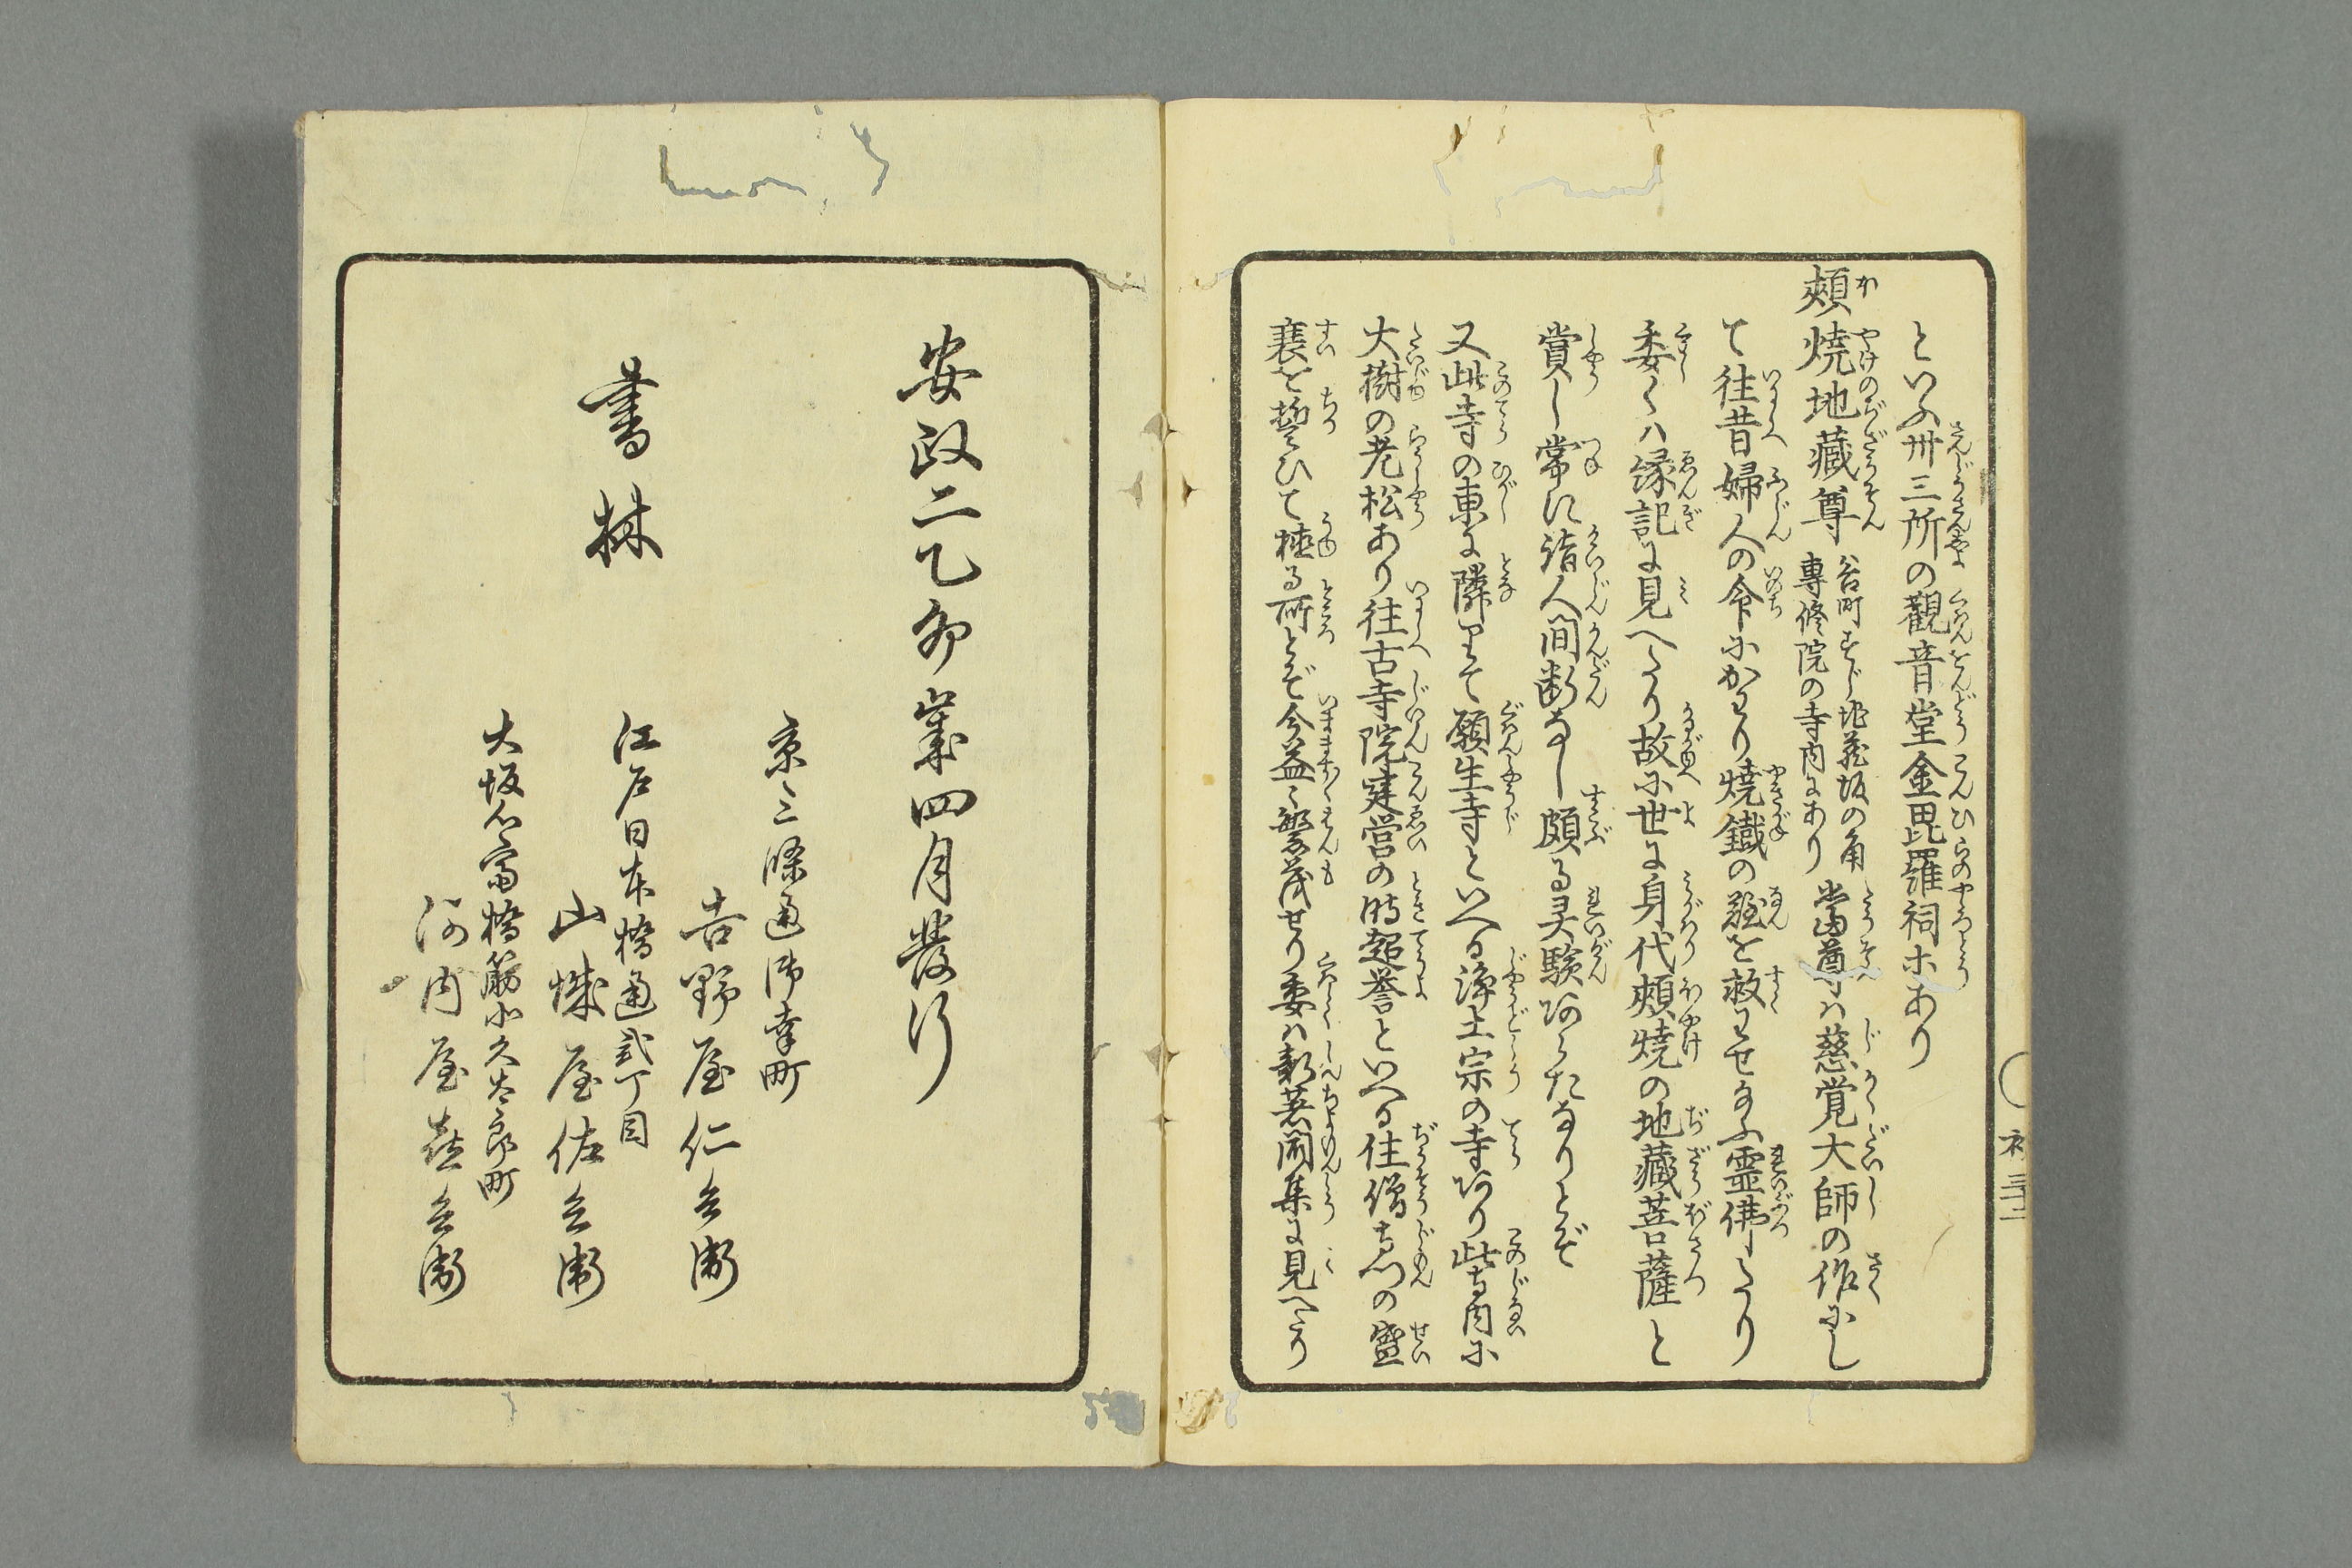 といふ卅三所の觀音堂金毘羅祠ホあり
頬焼地藏尊 谷町すじ地蔵坂の角
專修院の寺内にあり 當尊ハ慈覚大師の作にし
て往昔婦人の命にかわり焼鐵の難を救わせ給ふ霊佛たり
委くハ縁記に見へたり故に世に身代頬焼の地藏菩薩と
賞し常に詣人間断なし頗る灵験あらたなりとぞ
又此寺の東に隣りて願生寺といへる浄土宗の寺あり此寺内に
大樹の老松あり往古寺院建営の時超誉といへる住僧寺門の盛
衰を誓ひて植る所とぞ今益〻繁茂せり委ハ新著聞集に見へたり
初 三十二
安政二乙卯歳四月發行
書林
京三條通御幸町
吉野屋仁兵衛
江戸日本橋通弐丁目
山城屋佐兵衛
大坂心斎橋筋北久太郎町
河内屋喜兵衛